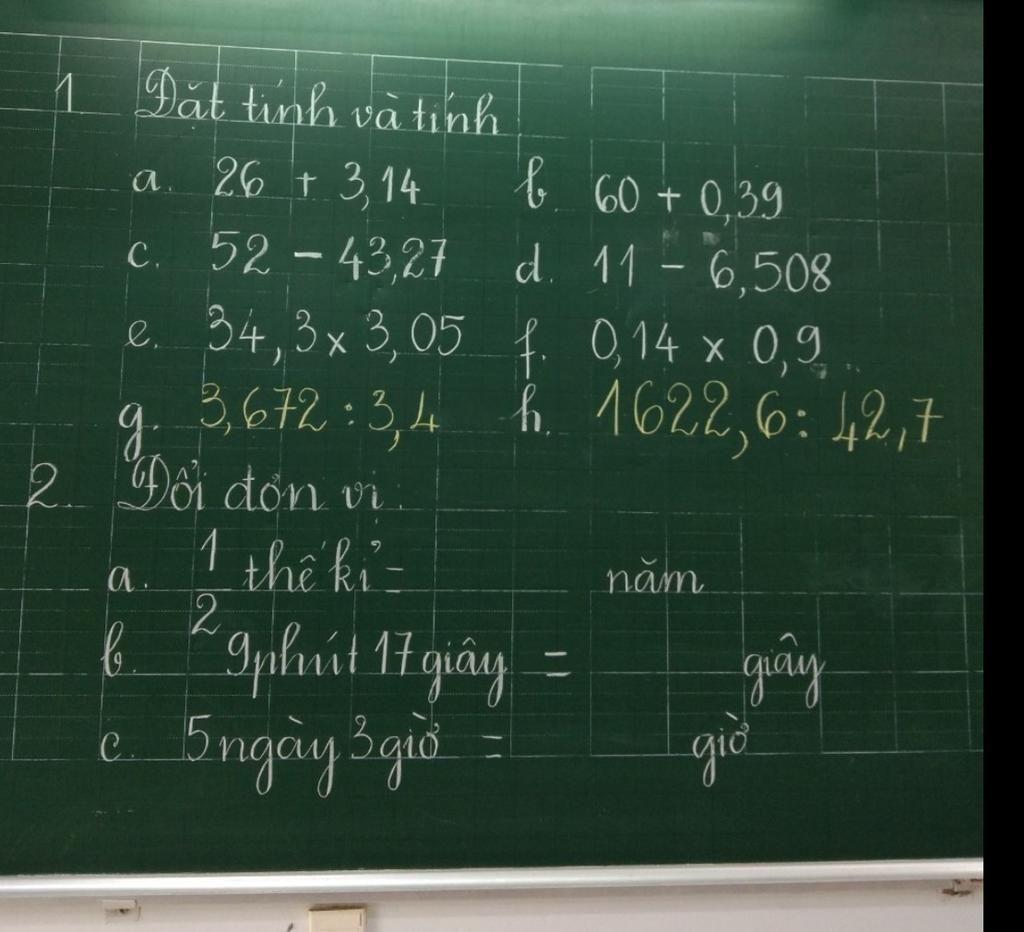 1 Đặt tính và tính
a. 26 + 3,14 b. 60 + 0,39
c. 52 - 43,27 d. 11 - 6,508
e. 34,3 x 3,05 f. 0,14 x 0,9
g. 3,672 : 3,4 h. 1622,6 : 42,7
2. Đổi đơn vị:
a. 1/2 thế kỉ = năm
b. 9 phút 17 giây = giây
c. 5 ngày 3 giờ = giờ